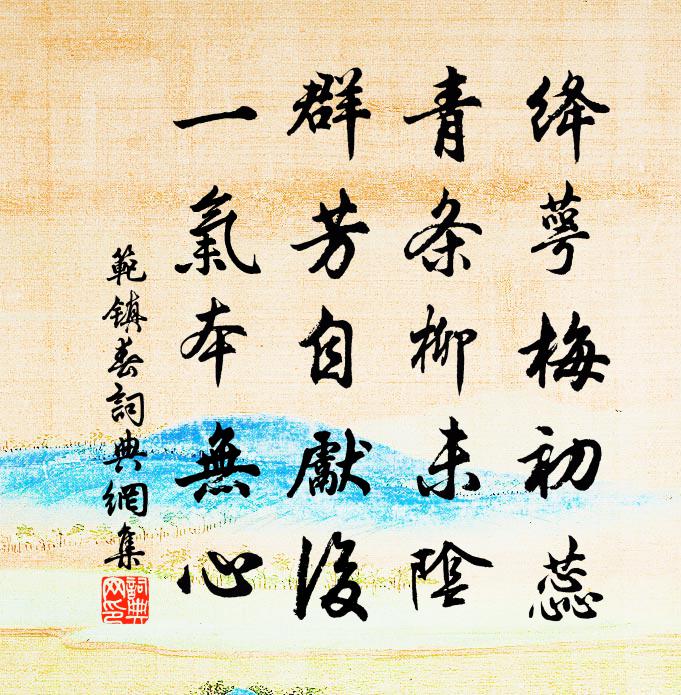 绛萼梅初蕊
青条柳未陰
群芳自獻後
一氣本無心
範鎮春詞典網集
詞典網印